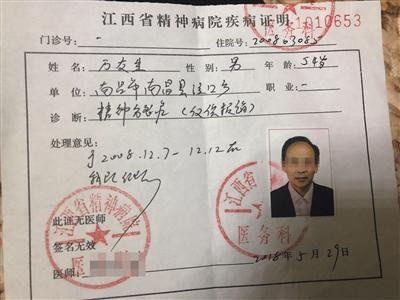 江西省精神病院疾病证明
1010653
门诊号: - 住院号: 200803085
姓名: 万友生 性别: 男 年龄: 54岁
单位: 南昌市南昌县 职业: -
诊断: 精神分裂症 (仅供报销)
处理意见:
于2008.12.7—12.12在
我院住院
此证无医师
签名无效
医师:
江西省精神病院
江西省
医务科
2018年5月29日